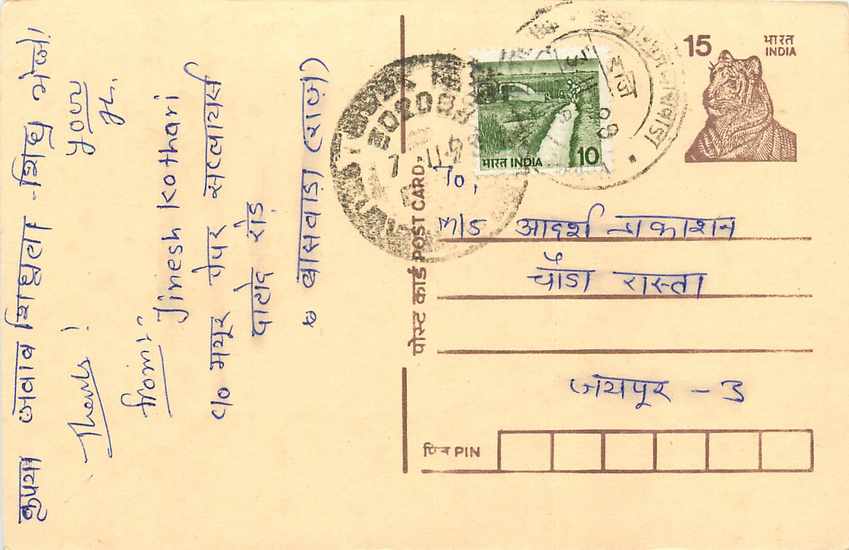 कृपया जवाब शिघ्रता -शिघ्र भेजे।
Thanks!
yours
from:-
Jinesh Kothari
c/o मयूर पेपर सप्लायर्स
पालोद रोड़
बांसवाड़ा (राज॰)
15 भारत
INDIA
भारत INDIA 10
302003
पोस्ट कार्ड POST CARD
To,
M/S आदर्श प्रकाशन
चौडा रास्ता
जयपूर - 3
पिन PIN